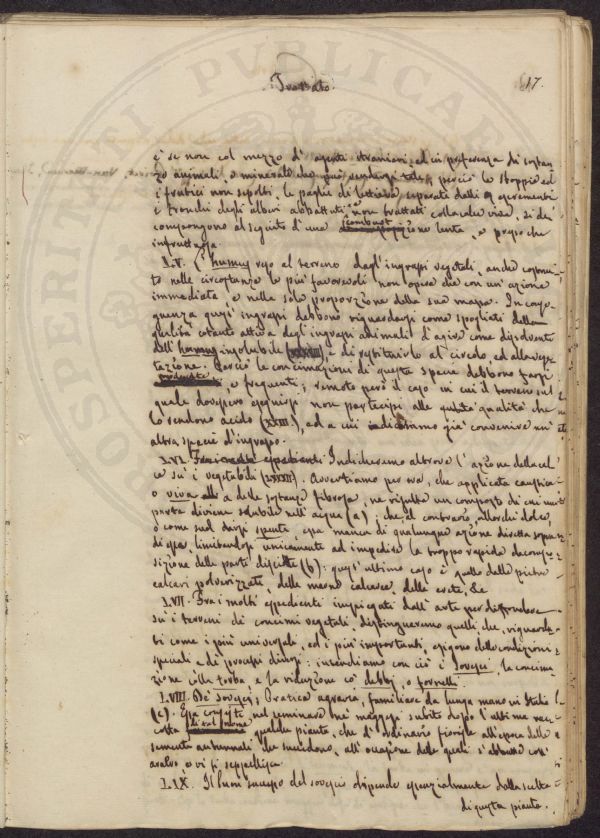 Trovato.
17.
è se non col mezzo d' agenti stranieri, ed in preferenza di sostan-
ze animali o minerali che può rendersi tale; perciò le stoppie ed
i frutici non sepolti, le paglie di lettiera separate dalli escrementi
e tronchi degli alberi abbattuti e non trattati colla calce viva, si de-
compongono al seguito d' una combustione lenta, e presso che
infruttuosa.
LV. L' humus reso al terreno dagl' ingrassi vegetali, anche costitui-
to nelle circostanze le più favorevoli non opera che con un' azione
immediata, e nella sola proporzione della sua massa. In conse-
guenza quest' ingrassi debbono riguardarsi come spogliati della
qualità cotanto attiva degl' ingrassi animali d' agire come dissolventi
dell' humus insolubile e di restituirlo al circolo, ed alla vege-
tazione. Perciò le concimazioni di questa specie debbono farsi
moderate
e frequenti; remoto però il caso in cui il terreno sul
quale dovessero eseguirsi non partecipi alle qualità che
lo rendono acido (XLIII.), ed a cui indicammo già convenire un'
altra specie d' ingrasso.
LVI. Indicheremo altrove l' azione della cal
ce su i vegetabili. Avvertiamo per ora, che applicata caustica
o viva alla delle sostanze fibrose, ne risulta un composto di cui una
parte diviene solubile nell' acqua (a); che, al contrario, allorchè dolce,
o come suol darsi spenta, essa manca di qualunque azione diretta sopra
di essa, limitandosi unicamente ad impedire la troppo rapida decompo-
sizione delle parti disciolte (b): quest' ultimo caso è quello delle pietre
calcari polverizzate, delle marne calcaree, delle crete, &c
LVII. Fra i molti espedienti impiegati dall' arte per diffondere
su i terreni de' concimi vegetali, distingueremo quelli che, riguarda-
ti come i più universali, ed i più importanti, esigono delle condizioni
speciali e de' processi diversi: intendiamo con ciò i Sovesci, la concima-
zione colla torba, e la riduzione co' debbi, o fornelli.
LVIII. De' sovesci; Pratica agraria, familiare da lunga mano in Italia
(c). Essa consiste nel seminare ne' maggesi subito dopo l' ultima rac-
colta qualche pianta, che d' ordinario fiorisce all' epoca delle
semente autunnali che succedono, all' occasione delle quali s' abbatte coll'
aratro, e vi si seppellisce.
LIX. Il buon successo del sovescio dipende essenzialmente dalla scelta
di questa pianta.